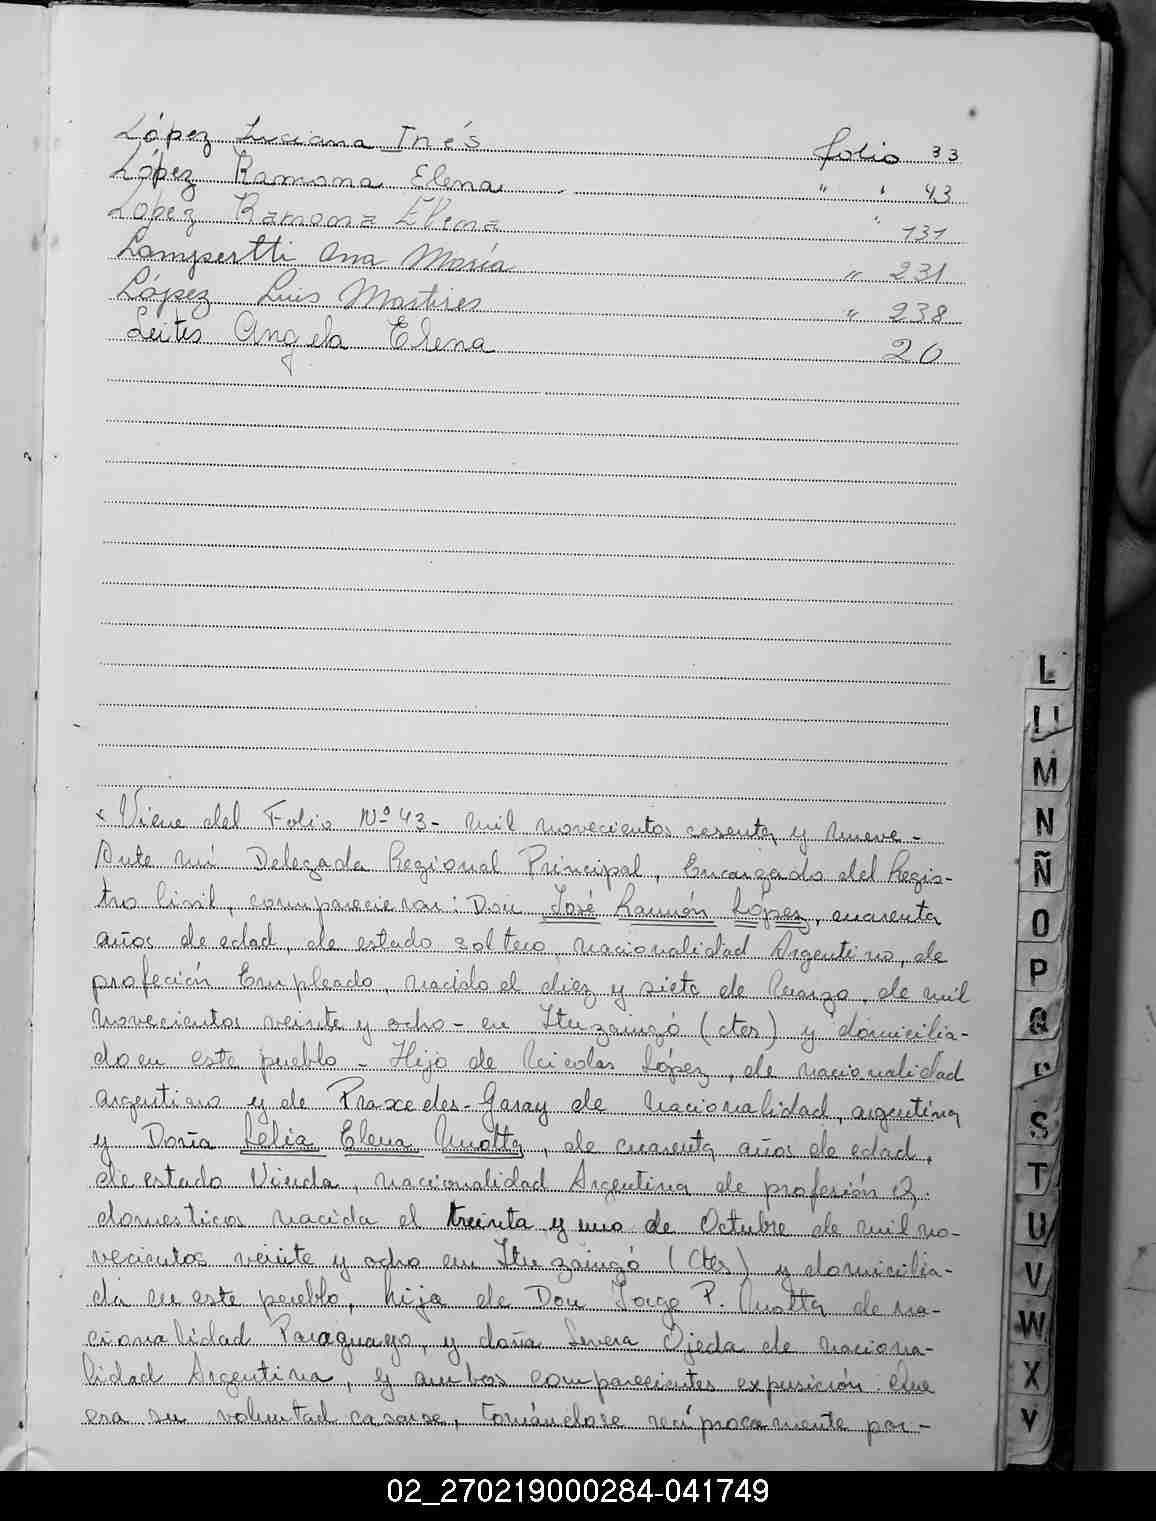 López Luciana Inés folio 33
López Ramona Elena " " 43
López Ramona Elena " 131
Lampertti Ana María " 231
López Luis Martires " 238
Leites Angela Elena 20
x Viene del Folio Nº 43 - mil novecientos sesenta y nueve -
Ante mí Delegada Regional Principal, Encargado del Regis-
tro Civil, comparecieron: Don José Ramón López, cuarenta
años de edad, de estado soltero, nacionalidad Argentino, de
profeción Empleado, nacido el diez y siete de Marzo, de mil
novecientos veinte y ocho - en Ituzaingó (ctes) y domicilia-
do en este pueblo - Hijo de Nicolas López, de nacionalidad
argentino y de Praxedes Garay de nacionalidad, argentina
y Doña Lelia Elena Motta, de cuarenta años de edad,
de estado Viuda, nacionalidad Argentina de profesión Q.
domesticos nacida el treinta y uno de Octubre de mil no-
vecientos veinte y ocho en Ituzaingó (Ctes) y domicilia-
da en este pueblo, hija de Don Jorge P. Motta de na-
cionalidad Paraguayo, y doña Severa Ojeda de naciona-
lidad Argentina, y ambos comparecientes expusición: Que
era su voluntad casarse, tomándose recíprocamente por-
L
Ll
M
N
Ñ
O
P
Q
S
T
U
V
W
X
Y
02_270219000284-041749